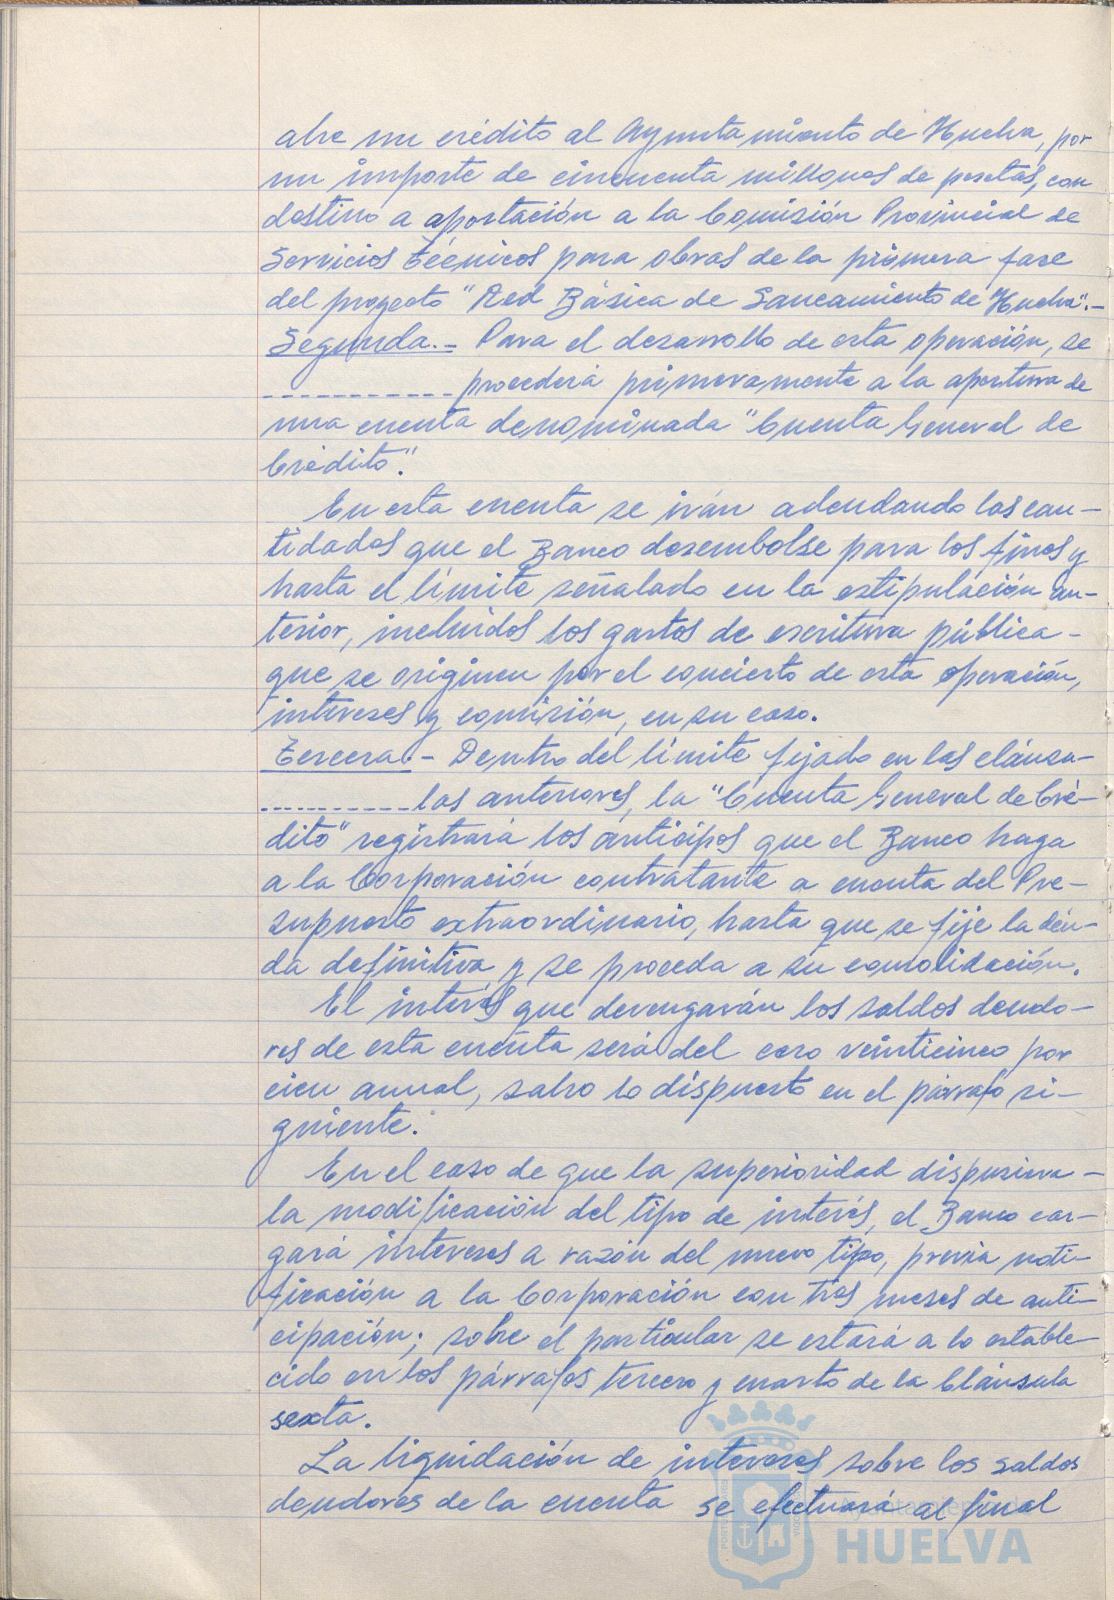 abre un crédito al Ayuntamiento de Huelva, por
un importe de cincuenta millones de pesetas, con
destino a aportación a la Comisión Provincial de
Servicios Técnicos para obras de la primera fase
del proyecto "Red Básica de Saneamiento de Huelva".-
Segunda.- Para el desarrollo de esta operación, se
----------- procederá primeramente a la apertura de
una cuenta denominada "Cuenta General de
Crédito".
En esta cuenta se irán adeudando las can-
tidades que el Banco desembolse para los fines y
hasta el límite señalado en la estipulación an-
terior, incluídos los gastos de escritura pública-
que se originen por el concierto de esta operación,
intereses y comisión, en su caso.
Tercera.- Dentro del límite fijado en las cláusu-
----------- las anteriores, la "Cuenta General de Cré-
dito" registrará los anticipos que el Banco haga
a la Corporación contratante a cuenta del Pre-
supuesto extraordinario, hasta que se fije la deu-
da definitiva y se proceda a su consolidación.
El interés que devengarán los saldos deudo-
res de esta cuenta será del cero veinticinco por
cien anual, salvo lo dispuesto en el párrafo si-
guiente.
En el caso de que la superioridad dispusiera-
la modificación del tipo de interés, el Banco car-
gará intereses a razón del nuevo tipo, previa noti-
ficación a la Corporación con tres meses de anti-
cipación; sobre el particular se estará a lo estable-
cido en los párrafos tercero y cuarto de la Cláusula
sexta.
La liquidación de intereses sobre los saldos
deudores de la cuenta se efectuará al final
Ayuntamiento de
HUELVA